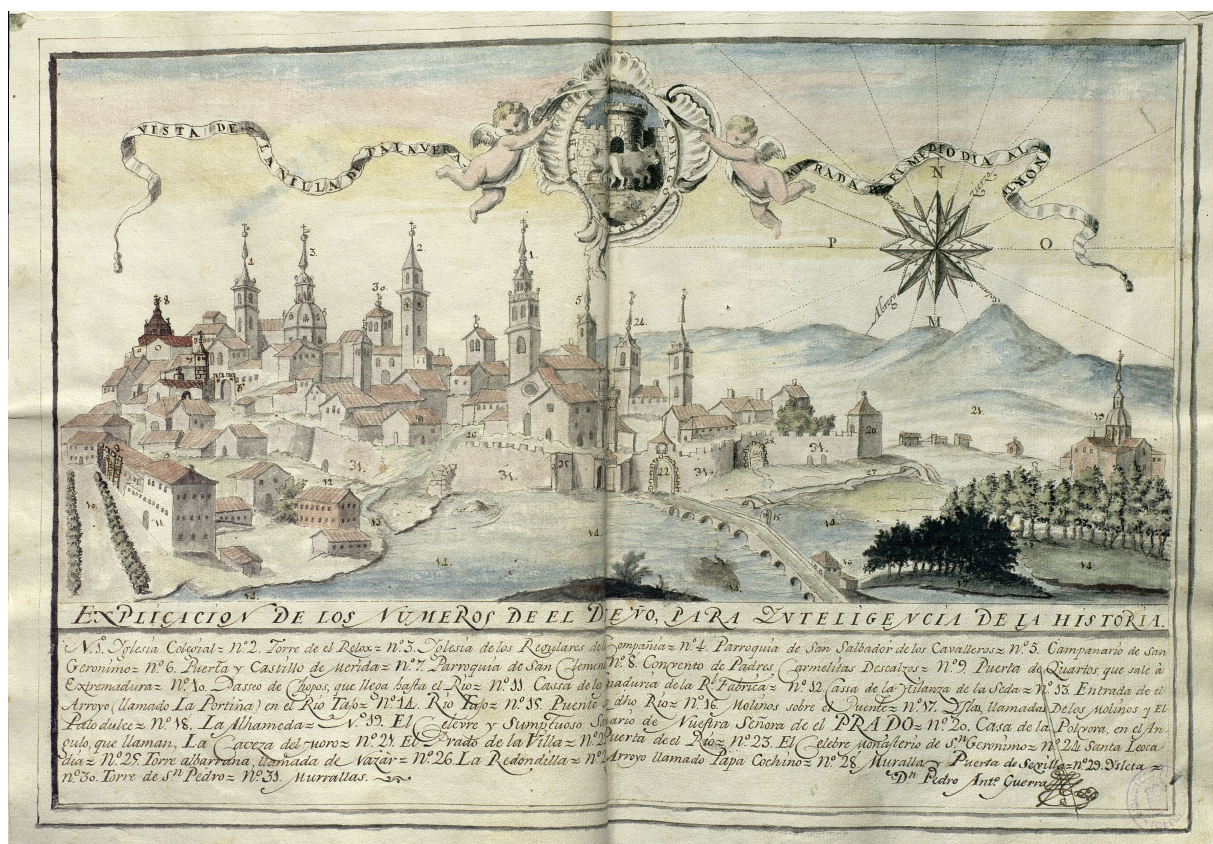 VISTA DE LA VILLA DE TALAVERA
MIRADA DE EL MEDIODIA AL NORTE
N
P
O
M
Abrego
4.
3.
2
1.
30.
5
24.
8
7
6
9
10.
11.
12
13
26
31.
31.
25
22
31.
28
31.
20.
27
21.
19
14.
14.
14.
15
16
14
17
14.
EXPLICACION DE LOS NUMEROS DE EL DISEÑO, PARA YNTELIGENCIA DE LA HISTORIA.
N.º 1. Yglesia Colegial = nº 2. Torre de el Relox = nº 3. Yglesia de los Regulares de la Compañia = nº 4. Parroquia de San Salbador de los Cavalleros = nº 5. Campanario de San
Geronimo = nº 6. Puerta y Castillo de Merida = nº 7. Parroquia de San Clemente Nº 8. Convento de Padres Carmelitas Descalzos = nº 9. Puerta de Quartos que sale à
Extremadura = Nº 10. Passeo de Chopos, que llega hasta el Rio = Nº 11 Cassa de la naduria de la Rl. Fabrica = nº 12 Cassa de la Hilanza de la Seda = nº 13. Entrada de el
Arroyo (llamado La Portiña) en el Rio Tajo = Nº 14. Rio Tajo = nº 15. Puente dho Rio = Nº 16. Molinos sobre el Puente = Nº 17. Yslas, llamadas De los Molinos y El
Palo dulce = Nº 18. La Alhameda = Nº 19. El Celevre y Sumptuoso Santuario de Nuestra Señora de el PRADO = nº 20. Casa de la Polvora, en el An
gulo, que llaman, La Caveza del moro = Nº 21. El Prado de la Villa = Nº 22 Puerta de el Rio = Nº 23. El Celebre monasterio de Sn. Geronimo = nº 24. Santa Leoca
dia = Nº 25. Torre albarrana, llamada de Nazar = nº 26. La Redondilla = nº 27 Arroyo llamado Papa Cochino = nº 28 Muralla y Puerta de Sevilla = nº 29. Ysleta =
nº 30. Torre de Sn Pedro = Nº 31. Murrallas.
Dn Pedro Antº. Guerra